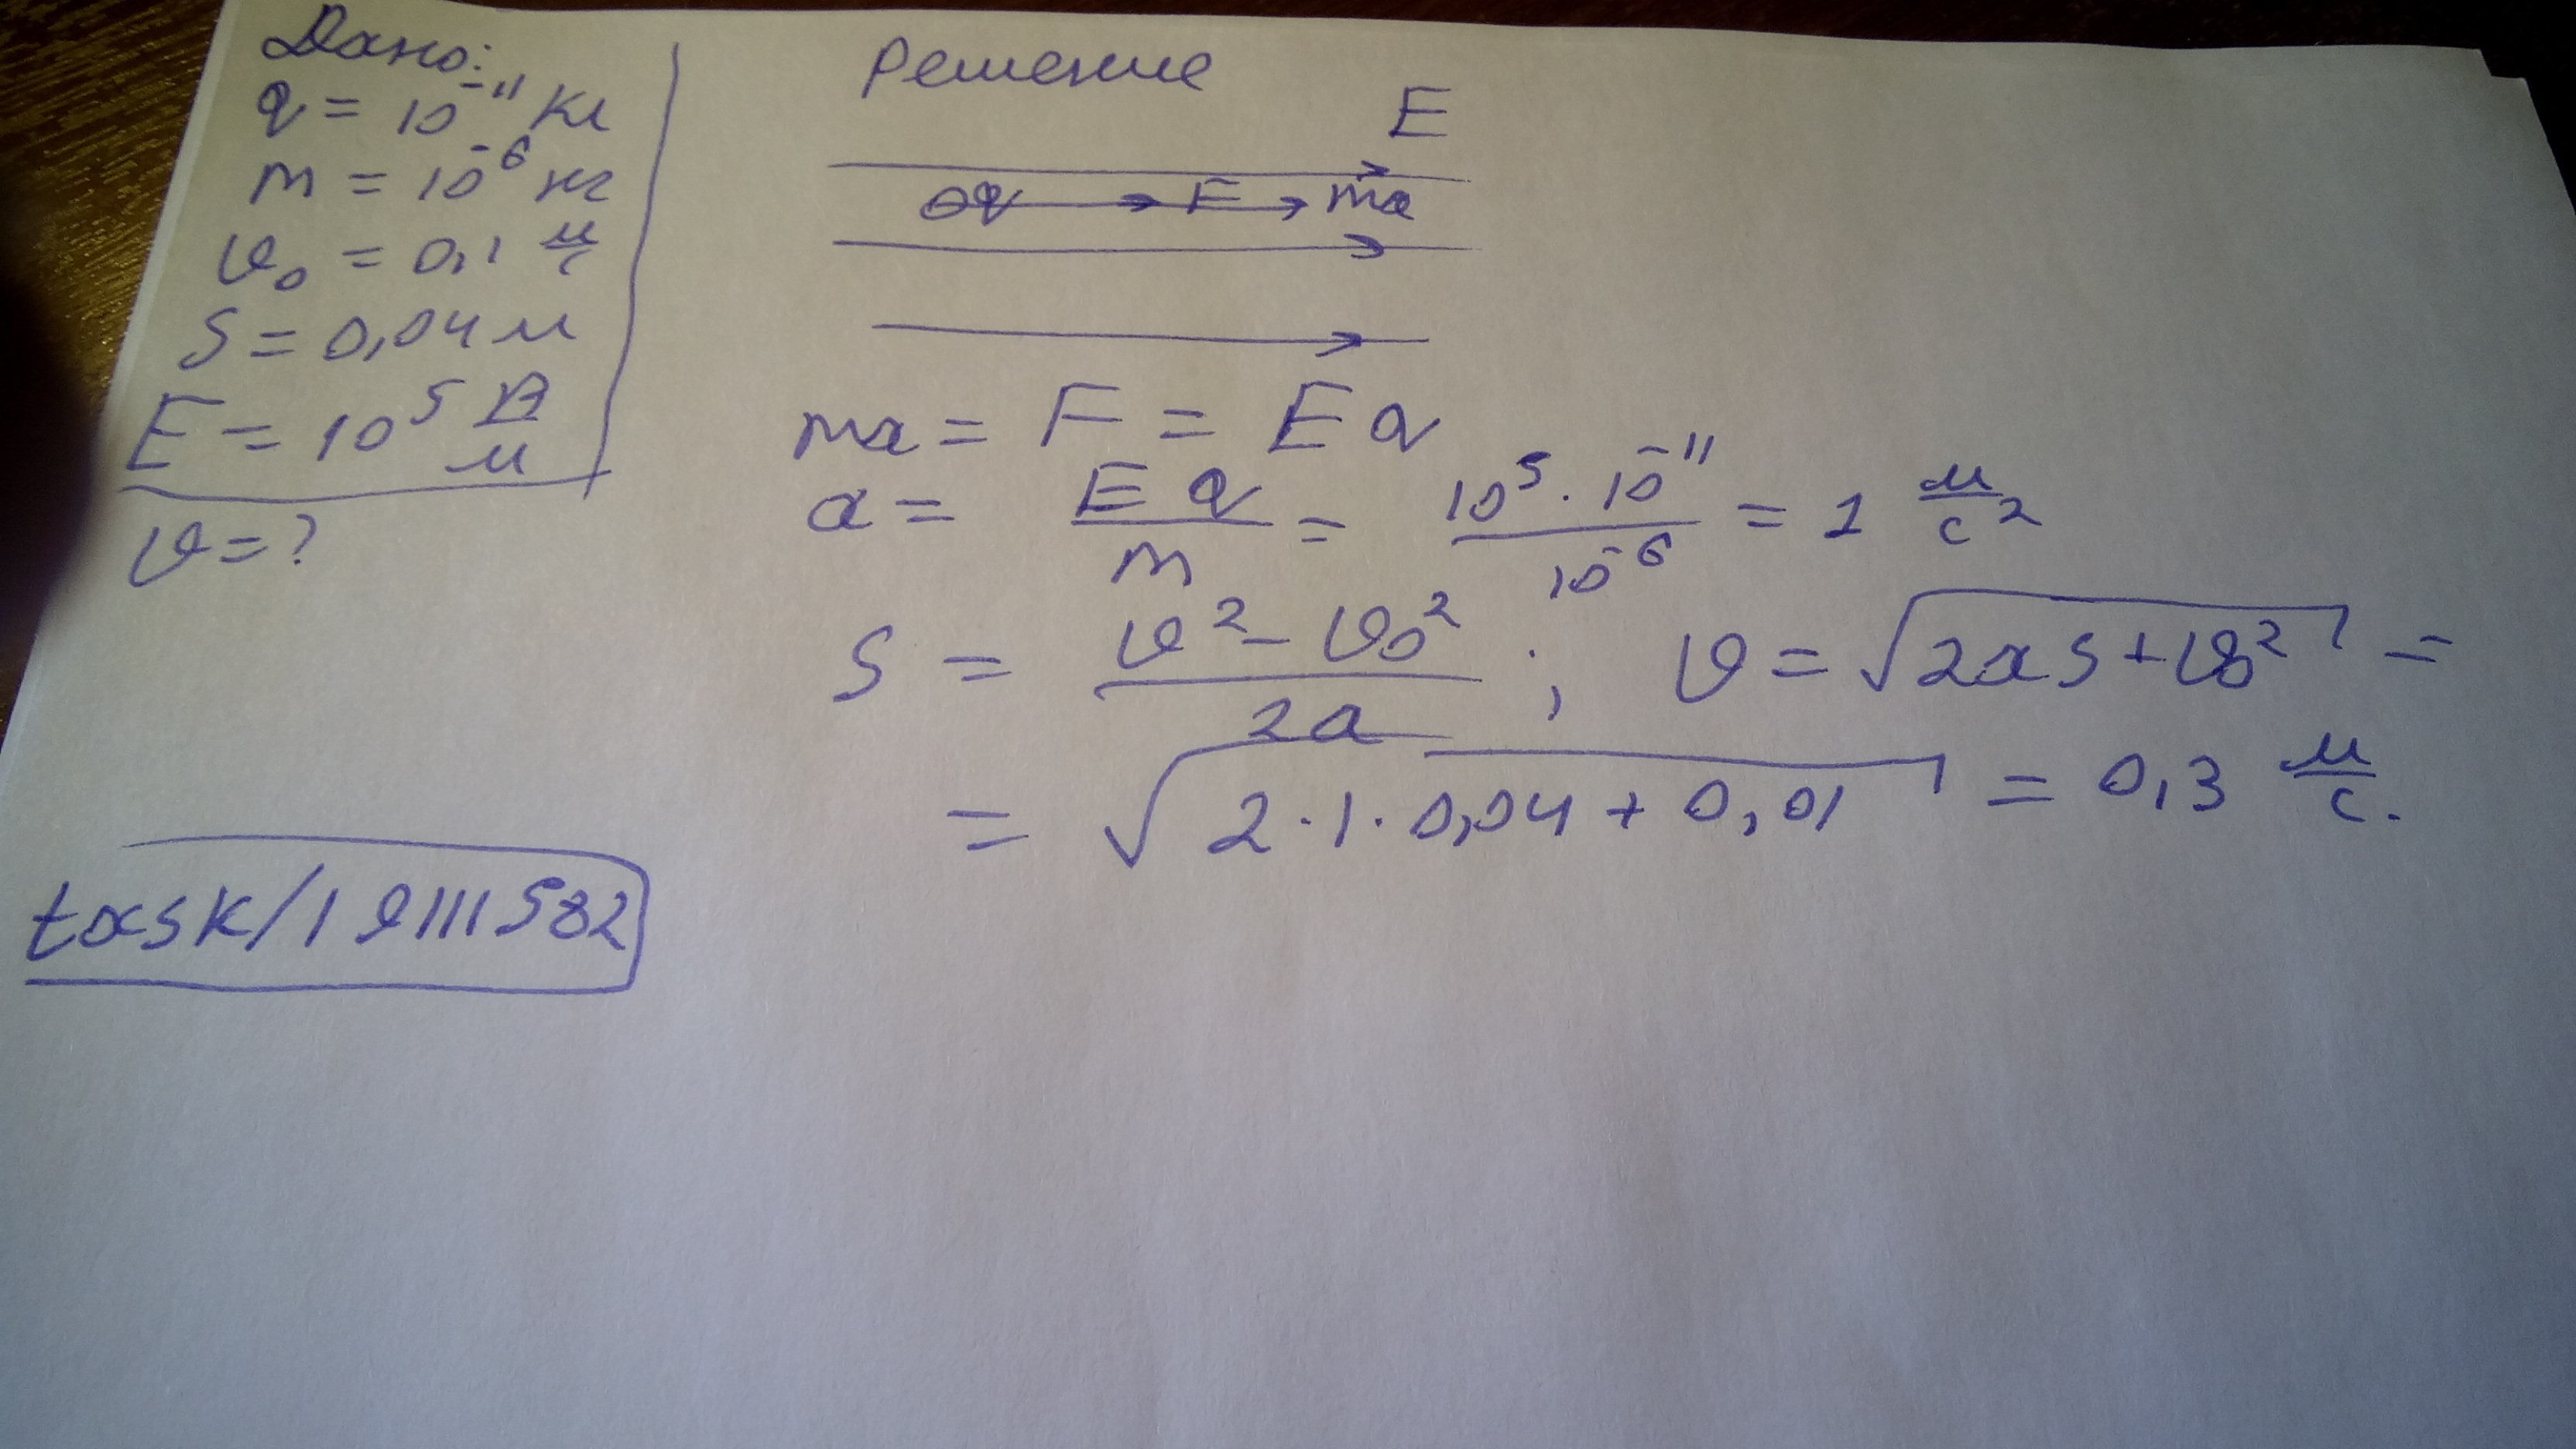 Дано:
q = 10⁻¹¹ Кл
m = 10⁻⁶ кг
υ₀ = 0,1 м/с
S = 0,04 м
E = 10⁵ В/м
υ = ?
Решение
E
q F ma
ma = F = Eq
a = Eq/m = 10⁵·10⁻¹¹/10⁻⁶ = 1 м/с²
S = (υ² - υ₀²)/2a ; υ = √(2aS + υ₀²) =
= √(2·1·0,04 + 0,01) = 0,3 м/с.
task/19111582